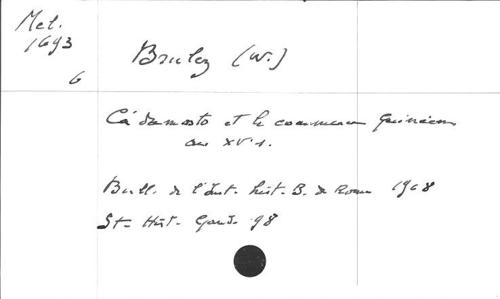 Mel.
1693
6
Brulez (W.)
Cà da mosto et le commerce guinéen
au XV s.
Bull. de l'Inst. hist. B. de Rome 1968
St. Hist. Gand. 98